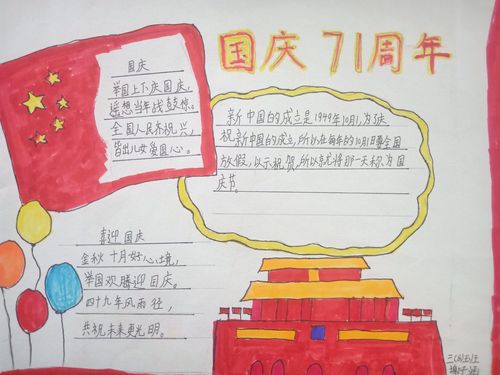 国庆71周年
国庆
举国上下庆国庆，
遥想当年战鼓惊。
全国人民齐祝兴，
皆出儿女爱国心。
新中国的成立是1949年10月1，为了庆
祝新中国的成立，所以在每年的10月1日要全国
放假，以示祝贺，所以京尤将那一天称为国
庆节。
喜迎国庆
金秋十月好心境，
举国欢腾迎国庆。
四十九年风雨径，
共祝未来更光明。